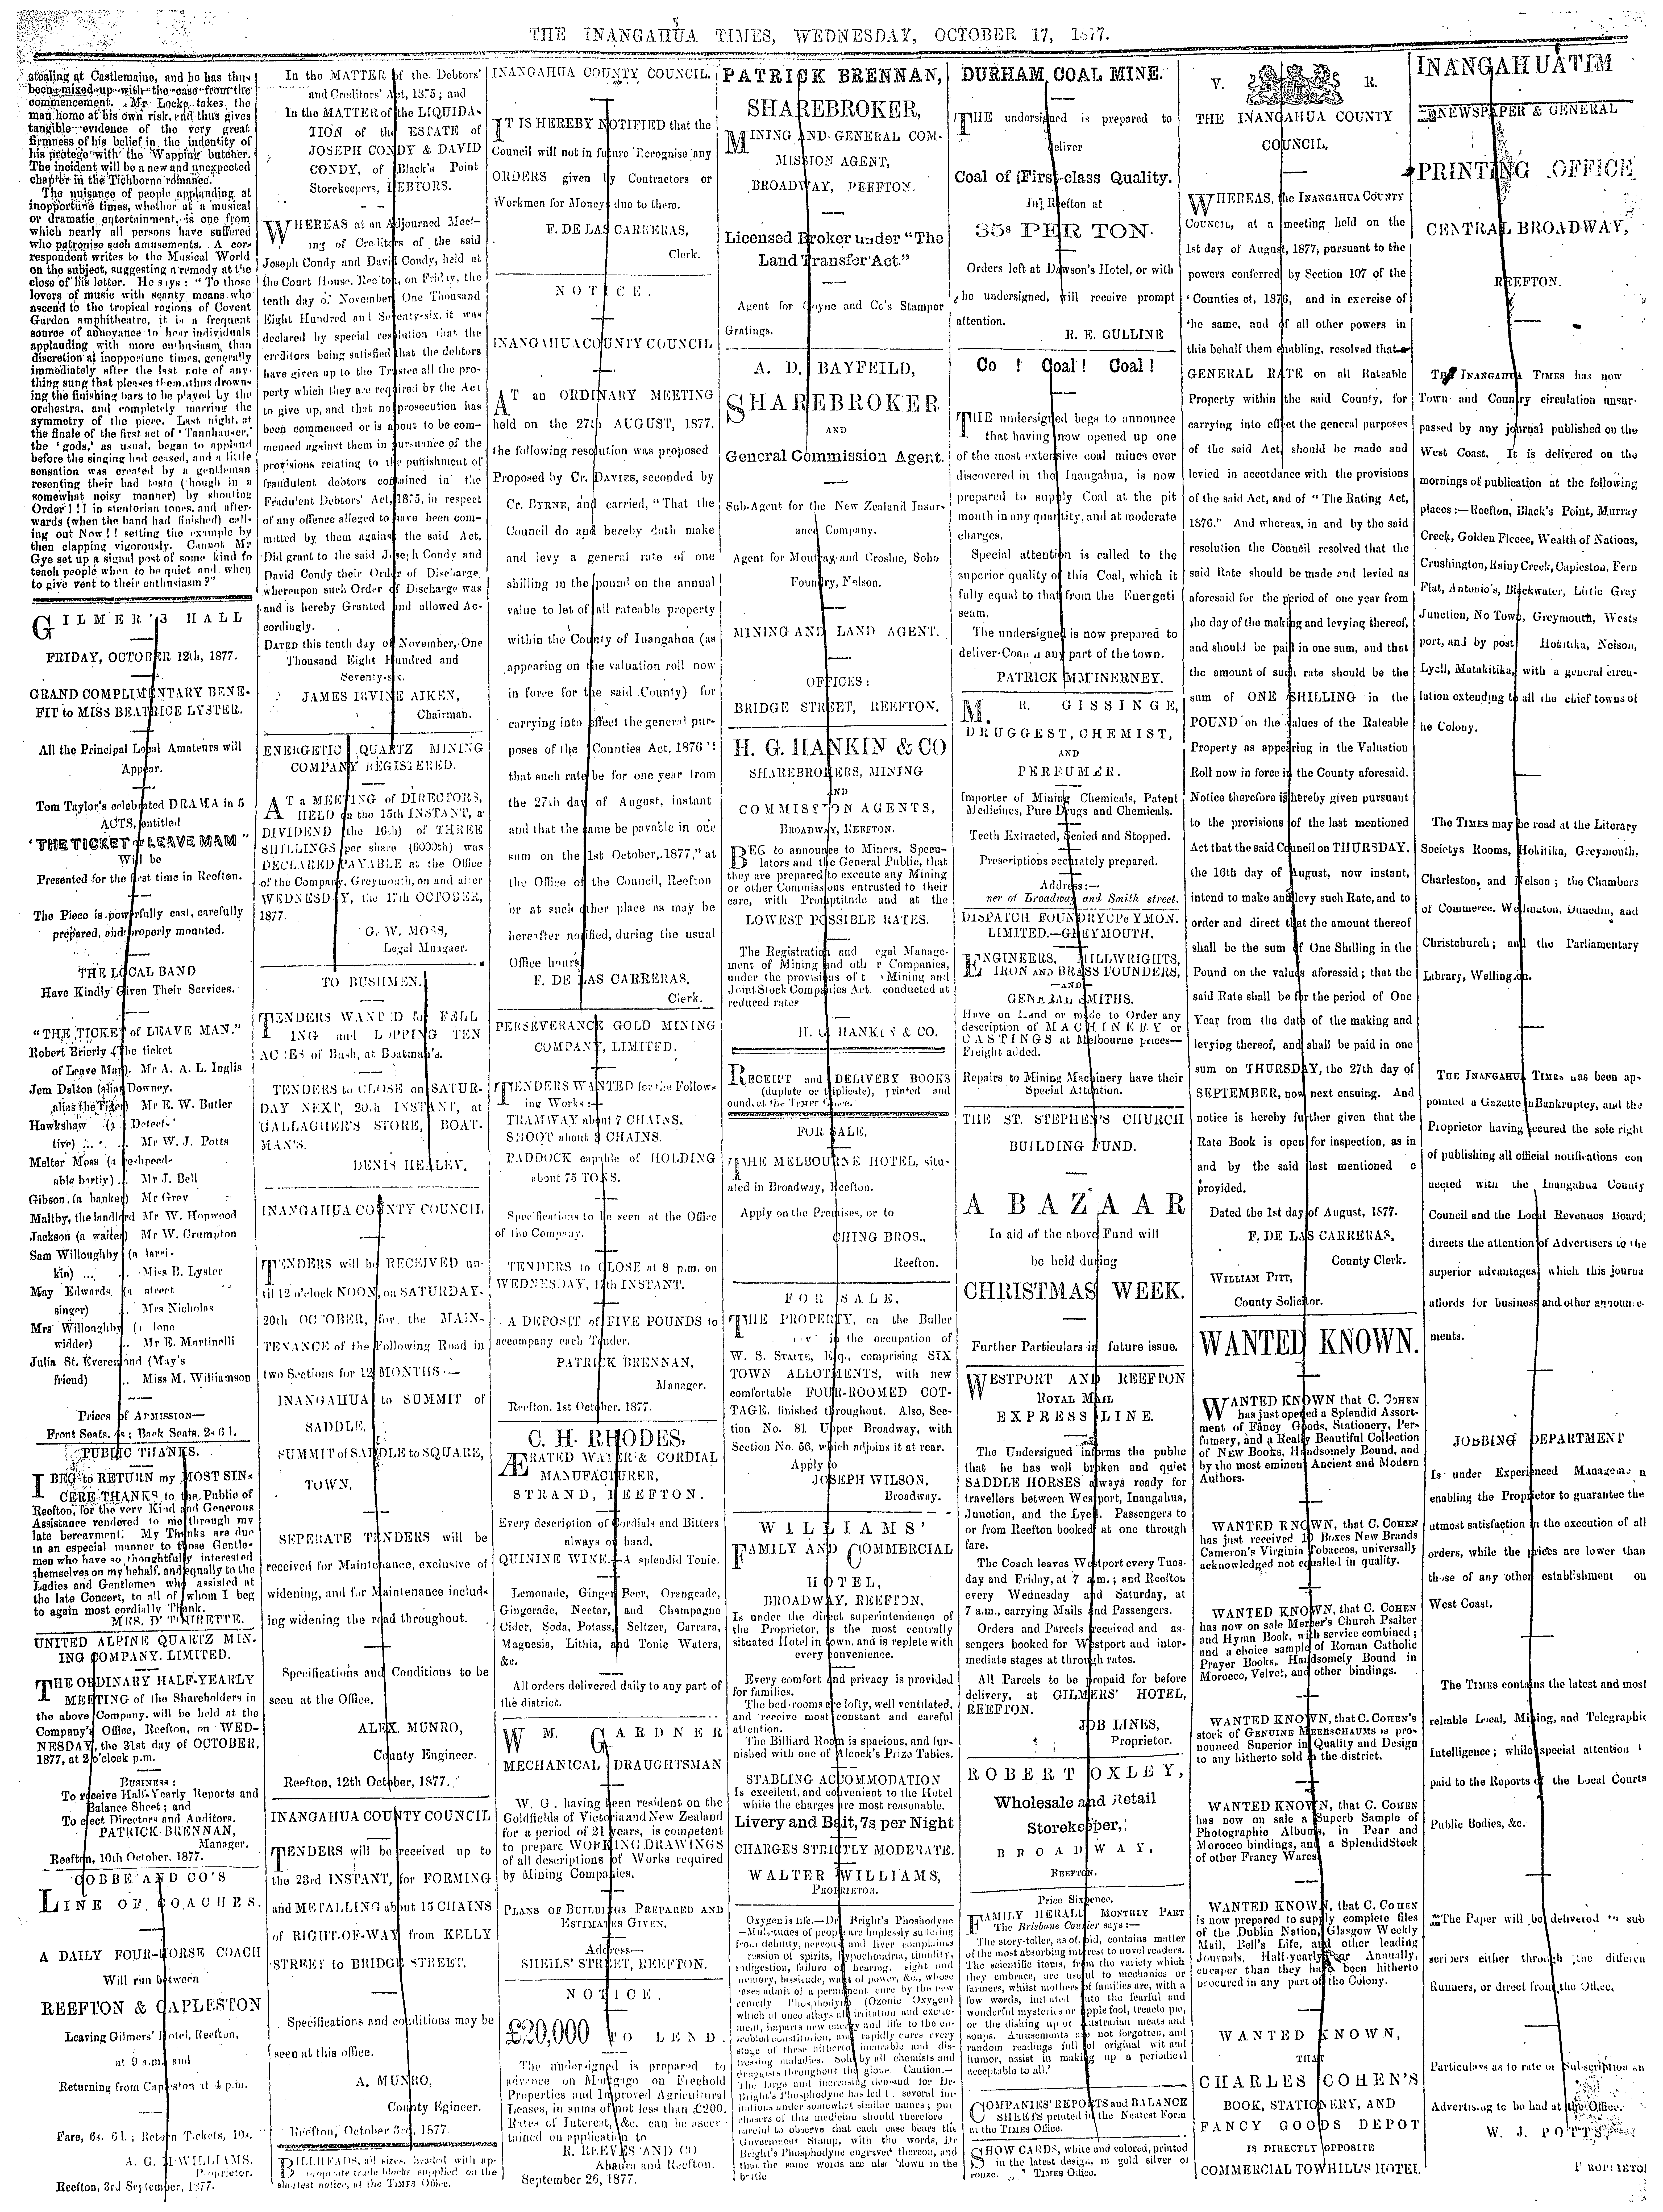 THE INANGAHUA TIMES, WEDNESDAY, OCTOBER 17, 1877.
stealing at Castlemaine, and he has thus
been mixed up with the case from the
commencement. Mr Locke takes the
man home at his own risk, and thus gives
tangible evidence of the very great
firmness of his belief in the indentity of
his protege with the Wapping butcher.
The incident will be a new and unexpected
chapter in the Tichborne romance.
The nuisance of people applauding at
inopportune times, whether at a musical
or dramatic entertainment, is one from
which nearly all persons have suffered
who patronise such amusements. A cor
respondent writes to the Musical World
on the subject, suggesting a remedy at the
close of his letter. He says: "To those
lovers of music with scanty means who
ascend to the tropical regions of Covent
Garden amphitheatre, it is a frequent
source of annoyance to hear individuals
applauding with more enthusiasm than
discretion at inopportune times, generally
immediately after the last note of any-
thing sung that pleases them, thus drown-
ing the finishing bars to be played by the
orchestra, and completely marring the
symmetry of the piece. Last night, at
the finale of the first act of 'Tannhauser,'
the 'gods,' as usual, began to applaud
before the singing had ceased, and a little
sensation was created by a gentleman
resenting their bad taste (though in a
somewhat noisy manner) by shouting
Order!!! in stentorian tones, and after-
wards (when the band had finished) call-
ing out Now!! setting the example by
then clapping vigorously. Cannot Mr
Gye set up a signal post of some kind to
teach people when to be quiet and when
to give vent to their enthusiasm?"
GILMER'S HALL
FRIDAY, OCTOBER 12th, 1877.
GRAND COMPLIMENTARY BENE-
FIT to MISS BEATRICE LYSTER.
All the Principal Local Amateurs will
Appear.
Tom Taylor's celebrated DRAMA in 5
ACTS, entitled
"THE TICKET of LEAVE MAM"
Will be
Presented for the first time in Reefton.
The Piece is powerfully cast, carefully
prepared, and properly mounted.
THE LOCAL BAND
Have Kindly Given Their Services.
"THE TICKET of LEAVE MAN."
Robert Brierly (The ticket
of Leave Man). Mr A. A. L. Inglis
Jem Dalton (alias Downey,
alias the Tiger) Mr E. W. Butler
Hawkshaw (a Detect-
tive) ... Mr W. J. Potts
Melter Moss (a
able party).. Mr J. Bell
Gibson, (a banker) Mr Grey
Maltby, the landlord Mr W. Hopwood
Jackson (a waiter) Mr W. Crumpton
Sam Willoughby (a larri-
kin) ... .. Miss B. Lyster
May Edwards (a street
singer) .. Mrs Nicholas
Mrs Willoughby (a lone
widder) .. Mr E. Martinelli
Julia St. Everemond (May's
friend) .. Miss M. Williamson
Prices of Admission—
Front Seats, 4s; Back Seats, 2s 6d.
PUBLIC THANKS.
I BEG to RETURN my MOST SIN-
CERE THANKS to the Public of
Reefton, for the very Kind and Generous
Assistance rendered to me through my
late bereavment. My Thanks are due
in an especial manner to those Gentle-
men who have so thoughtfully interested
themselves on my behalf, and equally to the
Ladies and Gentlemen who assisted at
the late Concert, to all of whom I beg
to again most cordially Thank.
UNITED ALPINE QUARTZ MIN-
ING COMPANY, LIMITED.
THE ORDINARY HALF-YEARLY
MEETING of the Shareholders in
the above Company, will be held at the
Company's Office, Reefton, on WED-
NESDAY, the 31st day of OCTOBER,
1877, at 2 o'clock p.m.
BUSINESS:
To receive Half-Yearly Reports and
Balance Sheet; and
To elect Directors and Auditors.
PATRICK BRENNAN,
Manager.
Reefton, 10th October, 1877.
COBBE AND CO'S
LINE OF COACHES.
A DAILY FOUR-HORSE COACH
Will run between
REEFTON & CAPLESTON
Leaving Gilmers' Hotel, Reefton,
at 9 a.m. and
Returning from Capleston at 4 p.m.
Fare, 6s. 6d.; Return Tickets, 10s.
A. G. M'WILLIAMS,
Proprietor.
Reefton, 3rd September, 1877.
In the MATTER of the Debtors'
and Creditors' Act, 1875; and
In the MATTER of the LIQUIDA-
TION of the ESTATE of
JOSEPH CONDY & DAVID
CONDY, of Black's Point
Storekeepers, DEBTORS.
WHEREAS at an Adjourned Meet-
ing of Creditors of the said
Joseph Condy and David Condy, held at
the Court House, Reefton, on Friday, the
tenth day of November One Thousand
Eight Hundred and Seventy-six, it was
declared by special resolution that the
creditors being satisfied that the debtors
have given up to the Trustee all the pro-
perty which they are required by the Act
to give up, and that no prosecution has
been commenced or is about to be com-
menced against them in pursuance of the
provisions relating to the punishment of
fraudulent debtors contained in the
Fradulent Debtors' Act, 1875, in respect
of any offence alleged to have been com-
mitted by them against the said Act,
Did grant to the said Joseph Condy and
David Condy their Order of Discharge,
whereupon such Order of Discharge was
and is hereby Granted and allowed Ac-
cordingly.
DATED this tenth day of November, One
Thousand Eight Hundred and
Seventy-six.
JAMES IRVINE AIKEN,
Chairman.
ENERGETIC QUARTZ MINING
COMPANY REGISTERED.
AT a MEETING of DIRECTORS,
HELD on the 15th INSTANT, a
DIVIDEND (the 16th) of THREE
SHILLINGS per share (6000th) was
DECLARED PAYABLE at the Office
of the Company, Greymouth, on and after
WEDNESDAY, the 17th OCTOBER,
1877.
G. W. MOSS,
Legal Mnagaer.
TO BUSHMEN.
TENDERS WANTED for FELL
ING and LOPPING TEN
ACRES of Bush, at Boatman's.
TENDERS to CLOSE on SATUR-
DAY NEXT, 20th INSTANT, at
GALLAGHER'S STORE, BOAT-
MAN'S.
DENIS HEALEY.
INANGAHUA COUNTY COUNCIL
TENDERS will be RECEIVED un-
til 12 o'clock NOON, on SATURDAY-
20th OCTOBER, for the MAIN-
TENANCE of the Following Road in
two Sections for 12 MONTHS—
INANGAHUA to SUMMIT of
SADDLE.
SUMMIT of SADDLE to SQUARE,
TOWN.
SEPERATE TENDERS will be
received for Maintenance, exclusive of
widening, and for Maintenance includ-
ing widening the road throughout.
Specifications and Conditions to be
seen at the Office.
ALEX. MUNRO,
County Engineer.
Reefton, 12th October, 1877.
INANGAHUA COUNTY COUNCIL
TENDERS will be received up to
the 23rd INSTANT, for FORMING
and METALLING about 15 CHAINS
of RIGHT-OF-WAY from KELLY
STREET to BRIDGE STREET.
Specifications and conditions may be
seen at this office.
A. MUNRO,
County Egineer.
Reefton, October 3rd, 1877.
BILLHEADS, all sizes, headed with ap-
propriate trade blocks supplied on the
shortest notice, at the TIMES Office.
INANGAHUA COUNTY COUNCIL.
IT IS HEREBY NOTIFIED that the
Council will not in future Recognise any
ORDERS given by Contractors or
Workmen for Money due to them.
F. DE LAS CARRERAS,
Clerk.
NOTICE.
INANGAHUA COUNTY COUNCIL
AT an ORDINARY MEETING
held on the 27th AUGUST, 1877.
the following resolution was proposed
Proposed by Cr. DAVIES, seconded by
Cr. BYRNE, and carried, "That the
Council do and hereby doth make
and levy a general rate of one
shilling in the pound on the annual
value to let of all rateable property
within the County of Inangahua (as
appearing on the valuation roll now
in force for the said County) for
carrying into effect the general pur-
poses of the 'Counties Act, 1876'!
that such rate be for one year from
the 27th day of August, instant
and that the same be payable in one
sum on the 1st October, 1877." at
the Office of the Council, Reefton
or at such other place as may be
hereafter notified, during the usual
Office hours.
F. DE LAS CARRERAS,
Clerk.
PERSEVERANCE GOLD MINING
COMPANY, LIMITED.
TENDERS WANTED for the Follow-
ing Works:—
TRAMWAY about 7 CHAINS.
SHOOT about 3 CHAINS.
PADDOCK capable of HOLDING
about 75 TONS.
Specifications to be seen at the Office
of the Company.
TENDERS to CLOSE at 8 p.m. on
WEDNESDAY, 17th INSTANT.
A DEPOSIT of FIVE POUNDS to
accompany each Tender.
PATRICK BRENNAN,
Manager.
Reefton, 1st October, 1877.
C. H. RHODES,
ÆRATED WATER & CORDIAL
MANUFACTURER,
STRAND, REEFTON.
Every description of Cordials and Bitters
always on hand.
QUININE WINE.—A splendid Tonic.
Lemonade, Ginger Beer, Orengeade,
Gingerade, Nectar, and Champagne
Cider, Soda, Potass, Seltzer, Carrara,
Magnesia, Lithia, and Tonic Waters,
&c.
All orders delivered daily to any part of
the district.
WM. GARDNER
MECHANICAL DRAUGHTSMAN
W. G. having been resident on the
Goldfields of Victoria and New Zealand
for a period of 21 years, is competent
to prepare WORKING DRAWINGS
of all descriptions of Works required
by Mining Companies.
PLANS OF BUILDINGS PREPARED AND
ESTIMATES GIVEN.
Address—
SHEILS' STREET, REEFTON.
NOTICE.
£20,000 TO LEND.
The undersigned is prepared to
advance on Mortgage on Freehold
Properties and Improved Agricultural
Leases, in sums of not less than £200.
Rates of Interest, &c. can be ascer-
tained on application to
R. REEVES AND CO
Ahaura and Reefton.
September 26, 1877.
PATRICK BRENNAN,
SHAREBROKER,
MINING AND GENERAL COM-
MISSION AGENT,
BROADWAY, REEFTON.
Licensed Broker under "The
Land Transfer Act."
Agent for Coyne and Co's Stamper
Gratings.
A. D. BAYFEILD,
SHAREBROKER
AND
General Commission Agent.
Sub-Agent for the New Zealand Insur-
ance Company.
Agent for Moutray and Crosbie, Soho
Foundry, Nelson.
MINING AND LAND AGENT.
OFFICES:
BRIDGE STREET, REEFTON.
H. G. HANKIN & CO
SHAREBROKERS, MINING
AND
COMMISSION AGENTS,
BROADWAY, REEFTON.
BEG to announce to Miners, Specu-
lators and the General Public, that
they are prepared to execute any Mining
or other Commissions entrusted to their
care, with Promptitude and at the
LOWEST POSSIBLE RATES.
The Registration and egal Manage-
ment of Mining and oth r Companies,
under the provisions of t Mining and
Joint Stock Companies Act. conducted at
reduced rates
H. G. HANKIN & CO.
RECEIPT and DELIVERY BOOKS
(duplate or triplicate), printed and
ound, at the TIMES Office.
FOR SALE,
THE MELBOURNE HOTEL, situ-
ated in Broadway, Reefton.
Apply on the Premises, or to
CHING BROS.,
Reefton.
FOR SALE.
THE PROPERTY, on the Buller
in the occupation of
W. S. STAITE, Esq., comprising SIX
TOWN ALLOTMENTS, with new
comfortable FOUR-ROOMED COT-
TAGE, finished throughout. Also, Sec-
tion No. 81 Upper Broadway, with
Section No. 56, which adjoins it at rear.
Apply to
JOSEPH WILSON,
Broadway.
WILLIAMS'
FAMILY AND COMMERCIAL
HOTEL,
BROADWAY, REEFTON.
Is under the direct superintendence of
the Proprietor, is the most centrally
situated Hotel in town, and is replete with
every convenience.
Every comfort and privacy is provided
for families.
The bed-rooms are lofty, well ventilated,
and receive most constant and careful
attention.
The Billiard Room is spacious, and fur-
nished with one of Alcock's Prize Tables.
STABLING ACCOMMODATION
Is excellent, and convenient to the Hotel
while the charges are most reasonable.
Livery and Bait, 7s per Night
CHARGES STRICTLY MODERATE.
WALTER WILLIAMS,
PROPRIETOR.
Oxygen is life.—Dr Bright's Phoshodyne
—Multitudes of people are hoplessly suffering
from debility, nervous and liver complaints
ression of spirits, hypochondria, timidity,
indigestion, failure of hearing, sight and
memory, lassitude, want of power, &c., whose
cases admit of a permanent cure by the new
remedy Phosphodyne (Ozonic Oxygen)
which at once allays all irritation and excite-
ment, imparts new energy and life to the en-
feebled constitution, and rapidly cures every
stage of these hitherto incurable and dis-
tressing maladies. Sold by all chemists and
druggists throughout the globe. Caution.—
The large and increasing demand for Dr
Bright's Phosphodyne has led t. several im-
itations under somewhat similar names; pur
chasers of this medicine should therefore
careful to observe that each case bears the
Government Stamp, with the words, Dr
Bright's Phosphodyne engraved thereon, and
that the same words are also blown in the
bottle
DURHAM COAL MINE.
THE undersigned is prepared to
deliver
Coal of First-class Quality.
In Reefton at
35s PER TON.
Orders left at Dawson's Hotel, or with
the undersigned, will receive prompt
attention.
R. E. GULLINE
Co ! Coal! Coal!
THE undersigned begs to announce
that having now opened up one
of the most extensive coal mines ever
discovered in the Inangahua, is now
prepared to supply Coal at the pit
mouth in any quantity, and at moderate
charges.
Special attention is called to the
superior quality of this Coal, which it
fully equal to that from the Energeti
seam.
The undersigned is now prepared to
deliver Coal any part of the town.
PATRICK M'INERNEY.
M. R. GISSINGE,
DRUGGEST, CHEMIST,
AND
PERFUMER.
Importer of Mining Chemicals, Patent
Medicines, Pure Drugs and Chemicals.
Teeth Extracted, Scaled and Stopped.
Prescriptions accurately prepared.
Address:—
ner of Broadway and Smith street.
DISPATCH FOUNDRY
LIMITED.—GREYMOUTH.
ENGINEERS, MILLWRIGHTS,
IRON AND BRASS FOUNDERS,
—AND—
GENERAL SMITHS.
Have on Land or made to Order any
description of MACHINERY or
CASTINGS at Melbourne prices—
Freight added.
Repairs to Mining Machinery have their
Special Attention.
THE ST. STEPHEN'S CHURCH
BUILDING FUND.
A BAZAAR
In aid of the above Fund will
be held during
CHRISTMAS WEEK.
Further Particulars in future issue.
WESTPORT AND REEFTON
ROYAL MAIL
EXPRESS LINE.
The Undersigned informs the public
that he has well broken and quiet
SADDLE HORSES always ready for
travellers between Westport, Inangahua,
Junction, and the Lyell. Passengers to
or from Reefton booked at one through
fare.
The Coach leaves Westport every Tues-
day and Friday, at 7 a.m.; and Reefton
every Wednesday and Saturday, at
7 a.m., carrying Mails and Passengers.
Orders and Parcels received and as-
sengers booked for Westport and inter-
mediate stages at through rates.
All Parcels to be prepaid for before
delivery, at GILMERS' HOTEL,
REEFTON.
JOB LINES,
Proprietor.
ROBERT OXLEY,
Wholesale and Retail
Storekeeper,
BROADWAY,
REEFTON.
Price Sixpence.
FAMILY HERALD MONTHLY PART
The Brisbane Courier says:—
The story-teller, as of old, contains matter
of the most absorbing interest to novel readers.
The scientific items, from the variety which
they embrace, are useful to mechanics or
farmers, whilst mothers of families are, with a
few words, initiated into the fearful and
wonderful mysteries of apple fool, treacle pie,
or the dishing up of Australian meats and
soups. Amusements are not forgotten, and
random readings full of original wit and
humor, assist in making up a periodical
acceptable to all.'
COMPANIES' REPORTS and BALANCE
SHEETS printed in the Neatest Form
at the TIMES Office.
SHOW CARDS, white and colored, printed
in the latest design, in gold silver or
ronze. TIMES Office.
V. R.
THE INANGAHUA COUNTY
COUNCIL,
WHEREAS, the INANGAHUA COUNTY
COUNCIL, at a meeting held on the
1st day of August, 1877, pursuant to the
powers conferred by Section 107 of the
'Counties ct, 1876, and in exercise of
the same, and of all other powers in
this behalf them enabling, resolved that a
GENERAL RATE on all Rateable
Property within the said County, for
carrying into effect the general purposes
of the said Act, should be made and
levied in accordance with the provisions
of the said Act, and of "The Rating Act,
1876." And whereas, in and by the said
resolution the Council resolved that the
said Rate should be made and levied as
aforesaid for the period of one year from
the day of the making and levying thereof,
and should be paid in one sum, and that
the amount of such rate should be the
sum of ONE SHILLING in the
POUND on the values of the Rateable
Property as appearing in the Valuation
Roll now in force in the County aforesaid.
Notice therefore is hereby given pursuant
to the provisions of the last mentioned
Act that the said Council on THURSDAY,
the 16th day of August, now instant,
intend to make and levy such Rate, and to
order and direct that the amount thereof
shall be the sum of One Shilling in the
Pound on the values aforesaid; that the
said Rate shall be for the period of One
Year from the date of the making and
levying thereof, and shall be paid in one
sum on THURSDAY, the 27th day of
SEPTEMBER, now next ensuing. And
notice is hereby further given that the
Rate Book is open for inspection, as in
and by the said last mentioned c
provided.
Dated the 1st day of August, 1877.
F. DE LAS CARRERAS,
County Clerk.
WILLIAM PITT,
County Solicitor.
WANTED KNOWN.
WANTED KNOWN that C. COHEN
has just opened a Splendid Assort-
ment of Fancy Goods, Stationery, Per-
fumery, and a Really Beautiful Collection
of New Books, Handsomely Bound, and
by the most eminent Ancient and Modern
Authors.
WANTED KNOWN, that C. COHEN
has just received 10 Boxes New Brands
Cameron's Virginia Tobaccos, universally
acknowledged not equalled in quality.
WANTED KNOWN, that C. COHEN
has now on sale Mercer's Church Psalter
and Hymn Book, with service combined;
and a choice sample of Roman Catholic
Prayer Books, Handsomely Bound in
Morocco, Velvet, and other bindings.
WANTED KNOWN, that C. COHEN'S
stock of GENUINE MEERSCHAUMS is pro-
nounced Superior in Quality and Design
to any hitherto sold in the district.
WANTED KNOWN, that C. COHEN
has now on sale a Superb Sample of
Photographic Albums, in Pear and
Morocco bindings, and a Splendid Stock
of other Francy Wares.
WANTED KNOWN, that C. COHEN
is now prepared to supply complete files
of the Dublin Nation, Glasgow Weekly
Mail, Bell's Life, and other leading
Journals, Half-yearly or Annually,
cheaper than they have been hitherto
procured in any part of the Colony.
WANTED KNOWN,
THAT
CHARLES COHEN'S
BOOK, STATIONERY, AND
FANCY GOODS DEPOT
IS DIRECTLY OPPOSITE
COMMERCIAL TOWHILL'S HOTEL.
INANGAHUA TIM
NEWSPAPER & GENERAL
PRINTING OFFICE
CENTRAL BROADWAY,
REEFTON.
THE INANGAHUA TIMES has now
Town and Country circulation unsur-
passed by any journal published on the
West Coast. It is delivered on the
mornings of publication at the following
places:—Reefton, Black's Point, Murray
Creek, Golden Fleece, Wealth of Nations,
Crushington, Rainy Creek, Capleston, Fern
Flat, Antonio's, Blackwater, Little Grey
Junction, No Town, Greymouth, Wests
port, and by post Hokitika, Nelson,
Lyell, Matakitika, with a general circu-
lation extending to all the chief towns of
he Colony.
The TIMES may be read at the Literary
Societys Rooms, Hokitika, Greymouth,
Charleston, and Nelson; the Chambers
of Commerce, Wellington, Dunedin, and
Christchurch; and the Parliamentary
Library, Wellington.
THE INANGAHUA TIMES has been ap-
pointed a Gazette in Bankruptcy, and the
Proprietor having secured the sole right
of publishing all official notifications con
nected with the Inangahua County
Council and the Local Revenues Board,
directs the attention of Advertisers to the
superior advantages which this journa
affords for business and other announce-
ments.
JOBBING DEPARTMENT
Is under Experienced Manageme n
enabling the Proprietor to guarantee the
utmost satisfaction in the execution of all
orders, while the prices are lower than
those of any other establishment on
West Coast.
The TIMES contains the latest and most
reliable Local, Mining, and Telegraphic
Intelligence; while special attention
paid to the Reports of the Local Courts
Public Bodies, &c.
The Paper will be delivered to sub
scribers either through the differen
Runners, or direct from the Office.
Particulars as to rate of Subscription an
Advertising to be had at the Office.
W. J. POTTS,
PROPRIETO